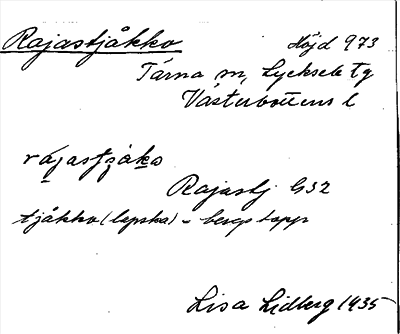 Rajastjåkko Höjd 973
Tärna sn, Lycksele tg
Västerbottens l
rájastjåkᴐ
Rajastj G32
tjåkko (lapska) = bergstopp
Lisa Lidberg 1935